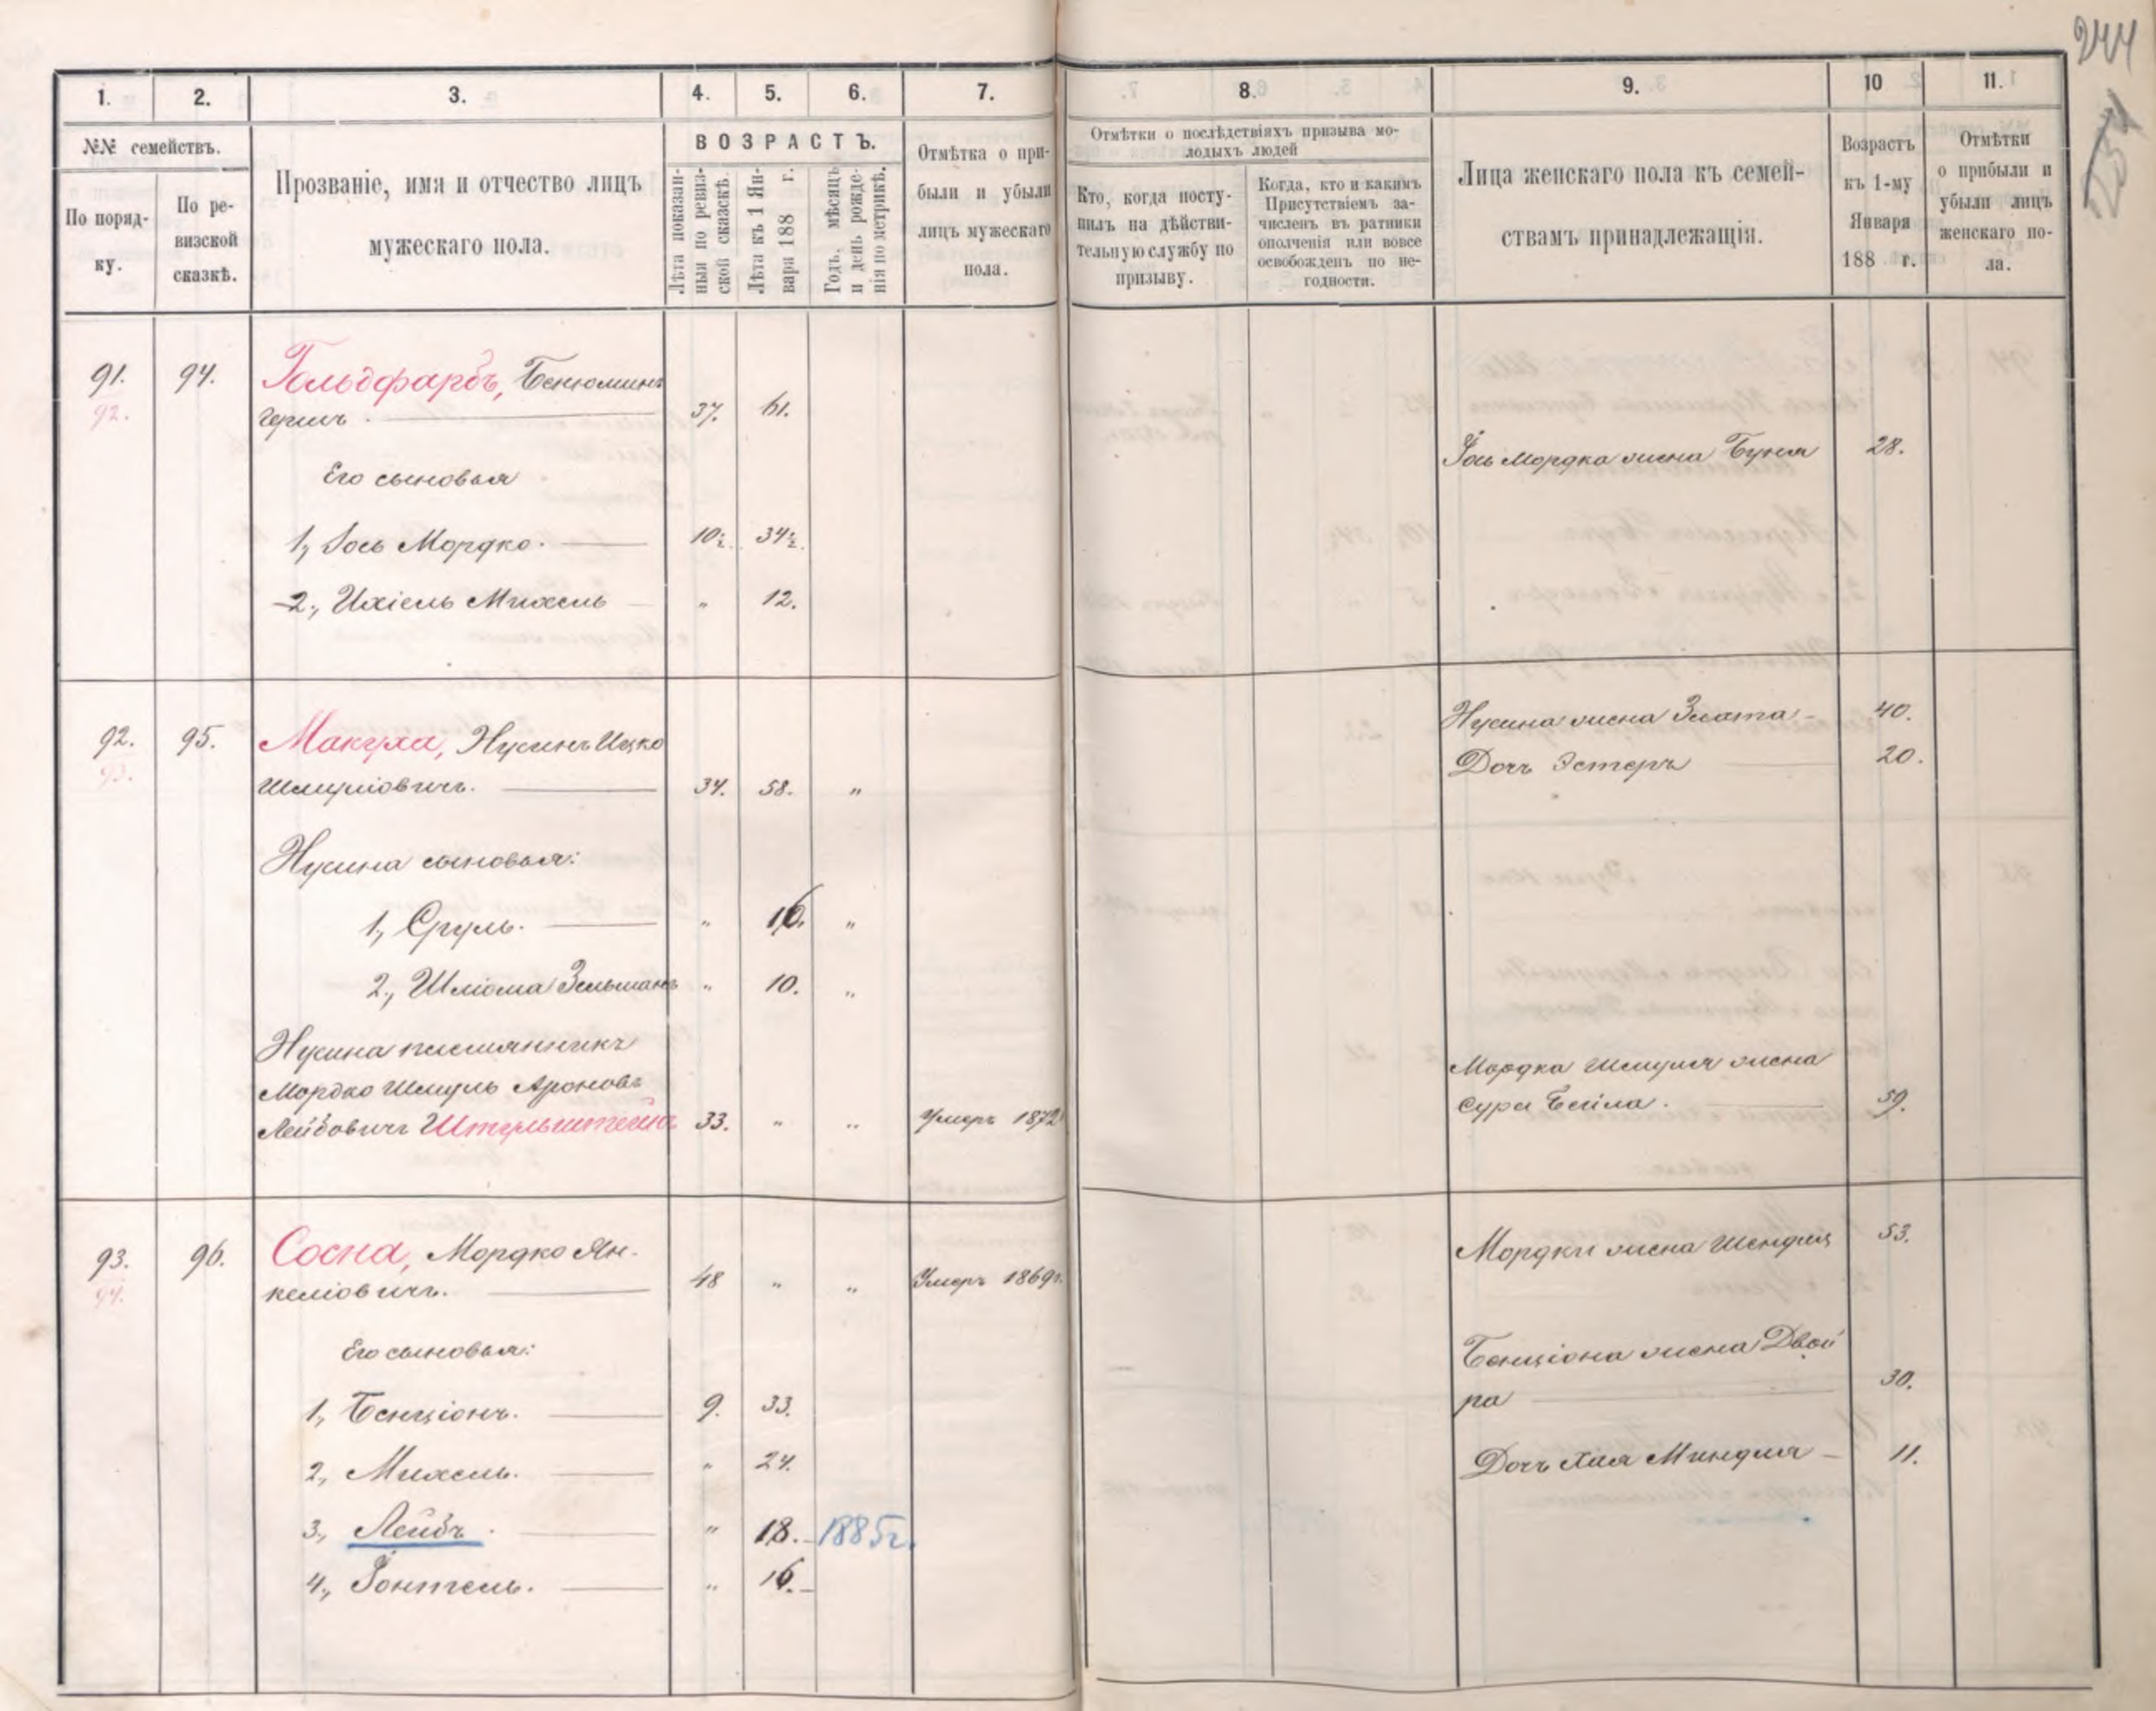 244
1. 2. 3. 4. 5. 6. 7. 8. 9. 10 11.
№№ семействъ.
По поряд-
ку.
По ре-
визской
сказкѣ.
Прозваніе, имя и отчество лицъ
мужескаго пола.
ВОЗРАСТЪ.
Лѣта показан-
ныя по ревиз-
ской сказкѣ.
Лѣта къ 1 Ян-
варя 188 г.
Годъ, мѣсяцъ
и день рожде-
нія по метрикѣ.
Отмѣтка о при-
были и убыли
лицъ мужескаго
пола.
Отмѣтки о послѣдствіяхъ призыва мо-
лодыхъ людей
Кто, когда посту-
пилъ на дѣйстви-
тельную службу по
призыву.
Когда, кто и какимъ
Присутствіемъ за-
численъ въ ратники
ополченія или вовсе
освобожденъ по не-
годности.
Лица женскаго пола къ семей-
ствамъ принадлежащія.
Возрастъ
къ 1-му
Января
188 г.
Отмѣтки
о прибыли и
убыли лицъ
женскаго по-
ла.
91. 94. Гольдфарбъ, Бенюминъ
92. Гершъ. 37. 61.
Іось Мордка жена Буня 28.
Его сыновья
1, Іось Мордко. 10½ 34½
2, Ихіель Михель „ 12.
92. 95. Макуха, Нусинъ Ицко
93. Шмуліовичъ. 34. 58. „
Нусина жена Злата 40.
Дочь Эстеръ 20.
Нусина сыновья:
1, Сруль. „ 16. „
2, Шліома Зельманъ „ 10. „
Нусина племянникъ
Мордко Шмуль Ароновъ
Лейбовичъ Штульштейнъ 33. „ „ Умеръ 1872
Мордка Шмуля жена
Сура Бейла. 59.
93. 96. Сосна, Мордко Ян-
94. келіовичъ. 48 „ „ Умеръ 1869г.
Мордки жена Шендля 53.
Его сыновья:
1, Бенціонъ. 9. 33.
Бенціона жена Двой
ра 30.
2, Михель. „ 24.
Дочь Хая Миндля 11.
3, Лейбъ. „ 18. 1885г.
4, Іонтель. „ 16.